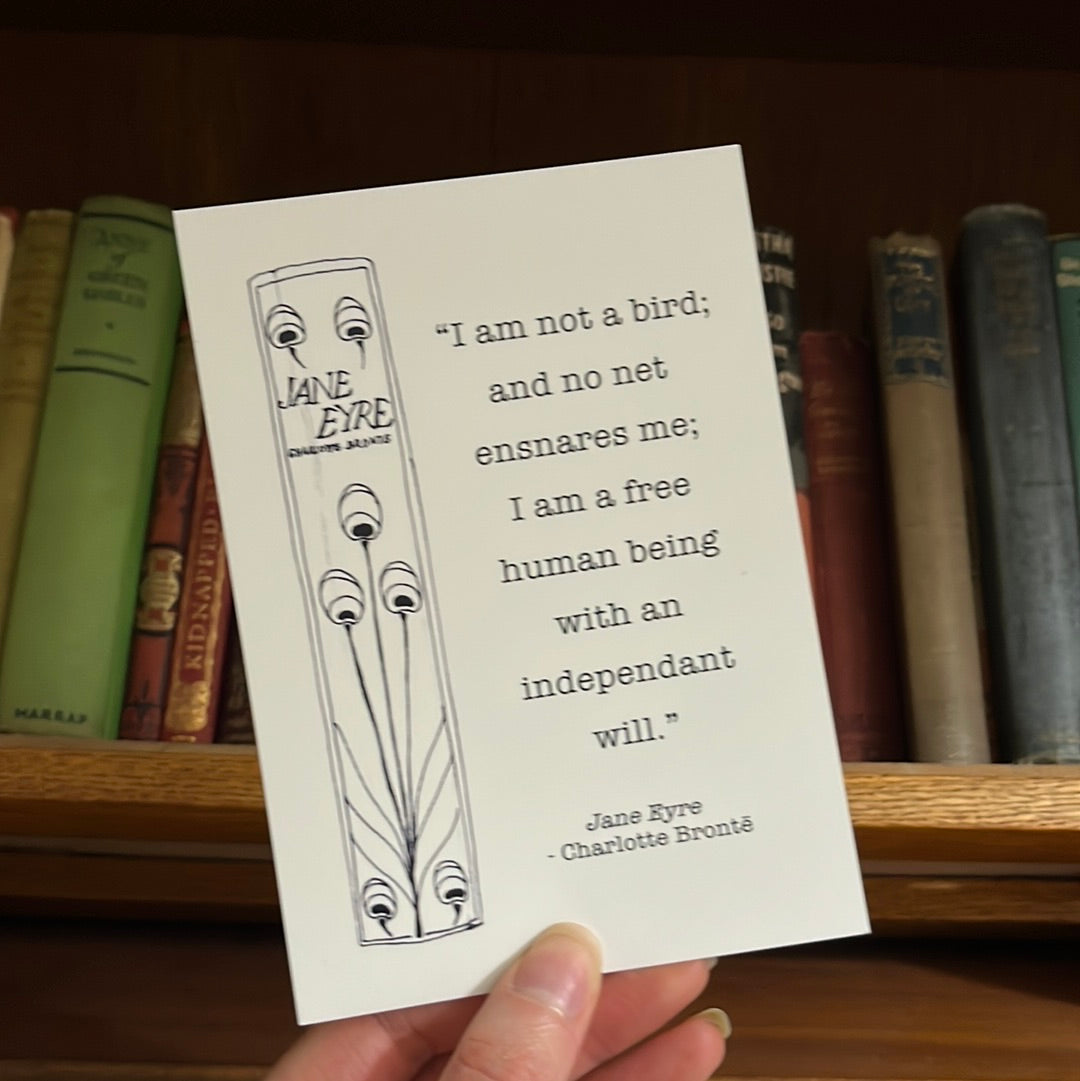 “I am not a bird;
and no net
ensnares me;
I am a free
human being
with an
independant
will.”
Jane Eyre
- Charlotte Brontē
JANE
EYRE
CHARLOTTE BRONTE
ANNE
of
GREEN
GABLES
HARRAP
KIDNAPPED